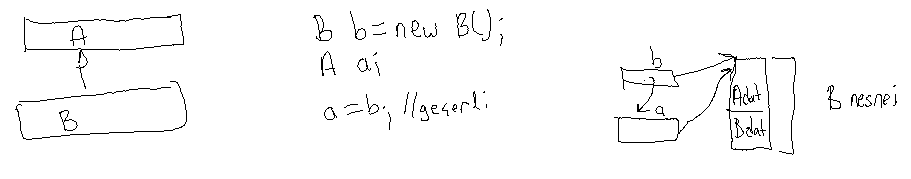 A
B
B b=new B();
A a;
a=b; //geçerli
b
a
Adat
Bdat
B nesnei